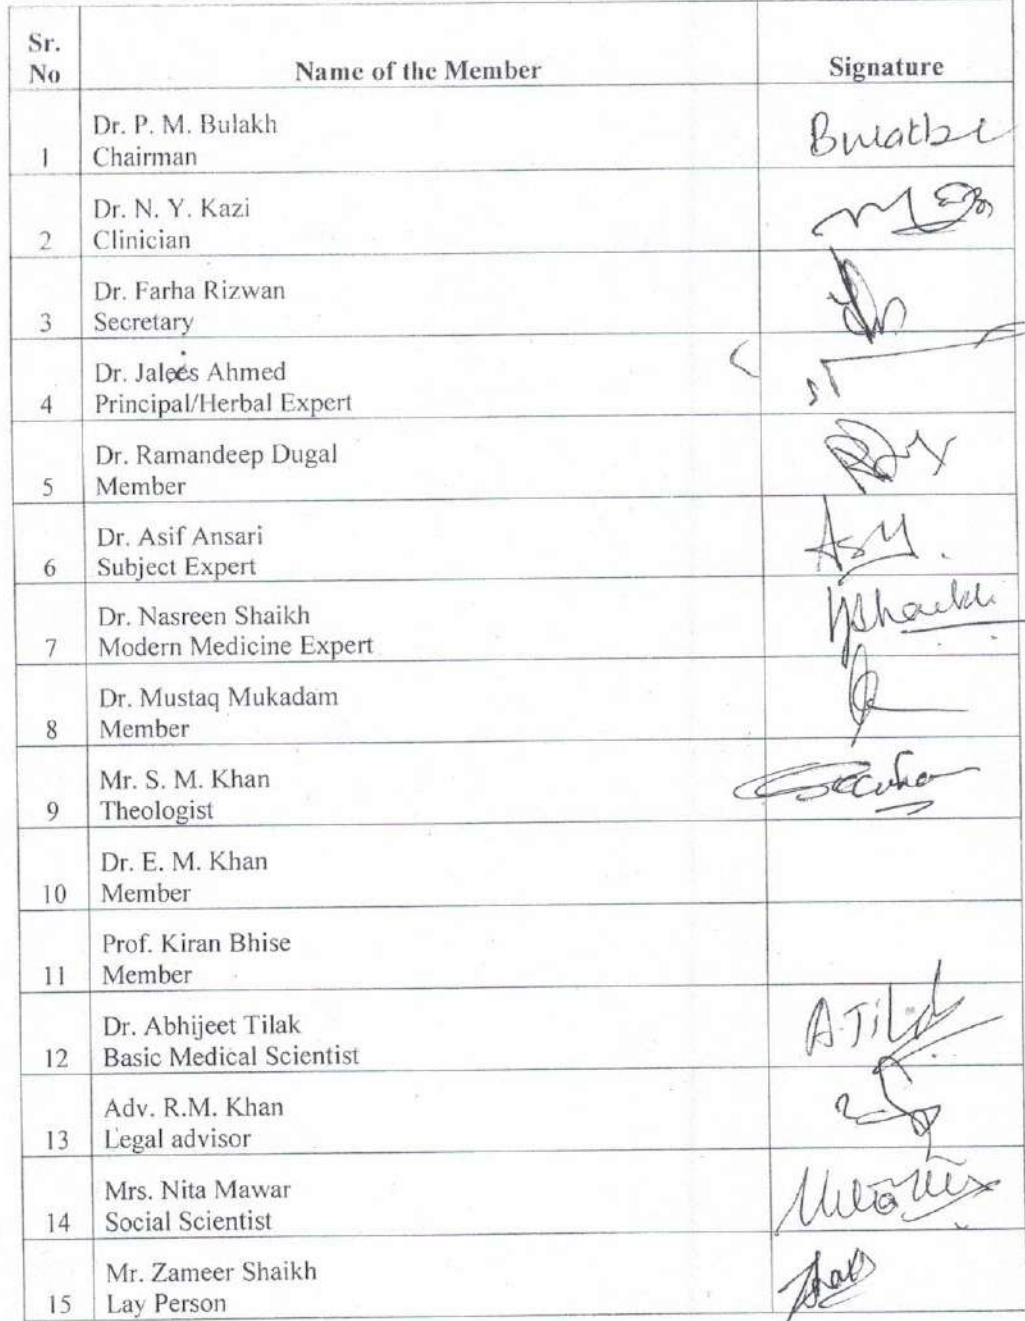 Sr.
No
Name of the Member
Signature
Dr. P. M. Bulakh
1
Chairman
Dr. N. Y. Kazi
2
Clinician
Dr. Farha Rizwan
3
Secretary
Dr. Jalees Ahmed
4
Principal/Herbal Expert
Dr. Ramandeep Dugal
5
Member
Dr. Asif Ansari
6
Subject Expert
Dr. Nasreen Shaikh
7
Modern Medicine Expert
Dr. Mustaq Mukadam
8
Member
Mr. S. M. Khan
9
Theologist
Dr. E. M. Khan
10
Member
Prof. Kiran Bhise
11
Member
Dr. Abhijeet Tilak
A.Tilak
12
Basic Medical Scientist
Adv. R.M. Khan
13
Legal advisor
Mrs. Nita Mawar
14
Social Scientist
Mr. Zameer Shaikh
15
Lay Person